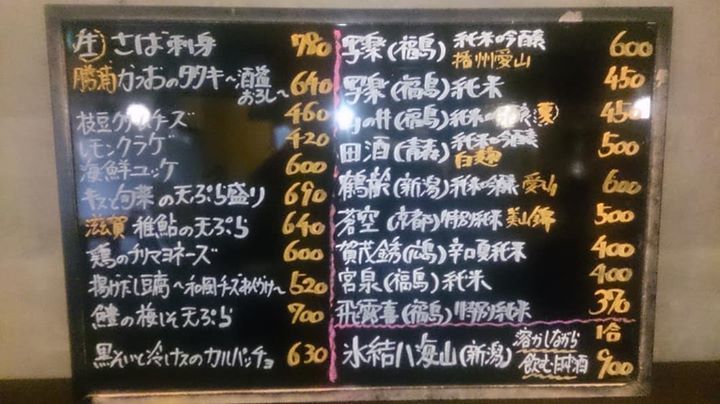 生 さば刺身 780
勝浦 かつおのタタキ〜酒盗おろし〜 640
枝豆クリームチーズ 460
レモンクラゲ 420
海鮮ユッケ 600
キスと旬菜の天ぷら盛り 690
滋賀 稚鮎の天ぷら 640
鶏のチリマヨネーズ 600
揚げだし豆腐 520
鱧の梅しそ天ぷら 700
黒そいと冷しナスのカルパッチョ 630
写楽(福島)純米吟醸 播州愛山 600
写楽(福島)純米 450
の井(福島)純米吟醸(夏) 450
田酒(青森)純米吟醸 白麹 500
鶴齢(新潟)純米吟醸 愛山 600
蒼空(京都)特別純米 美山錦 500
賀茂金秀(広島)辛口夏純米 400
宮泉(福島)純米 400
飛露喜(福島)特別純米 370
氷結八海山(新潟) 溶かしながら飲む日本酒 1合 900